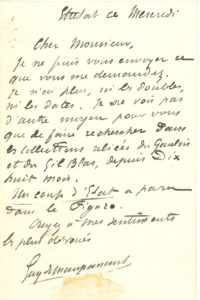 Etretat ce Mercredi
Cher Monsieur,
Je ne puis vous envoyer ce
que vous me demandez.
Je n'ai plus, ni les doubles,
ni les dates. Je ne vois pas
d'autre moyen pour vous
que de faire rechercher dans
les collections reliées du Gaulois
et du Gil Blas, depuis Dix
huit mois.
Un coup d'Etat a paru
dans le Figaro.
Croyez à mes sentiments
les plus dévoués
Guy de Maupassant